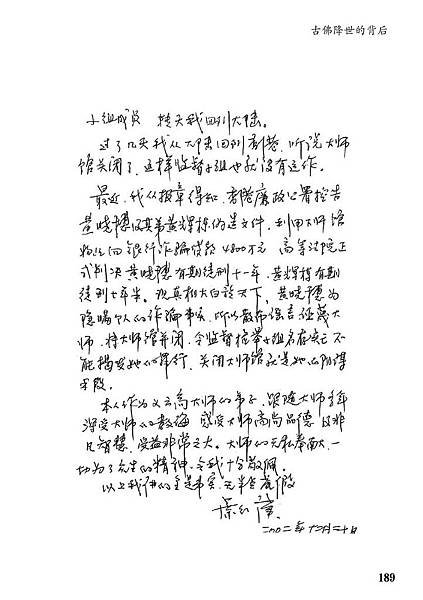 古佛降世的背后
小组成员 择天我回到大陆。
过了几天我从大陆回到香港，听说大师
馆关闭了，这样监督小组也就没有运作。
最近，我从报章得知，香港廉政公署控告
黄晓穗及其弟黄辉栋伪造文件，利用大师馆
物业向银行诈骗贷款4800万元 高等法院正
式判决黄晓穗有期徒刑十一年，黄辉栋有期
徒刑七年半。现真相大白于天下，黄晓穗为
隐瞒个人的诈骗事实，所以散布谣言诬蔑大
师，将大师馆关闭，令监督检举小组名存实亡 不
能揭发她的罪行，关闭大师馆就是她的阴谋
手段。
本人作为义云高大师的弟子，跟随大师多年
深受大师的教诲 感受大师高尚品德 及非
凡智慧，受益非常之大。大师的无私奉献，一
切为了众生的精神，令我十分敬佩。
以上我讲的全是事实，无半点虚假
二00二年十二月二十日
189